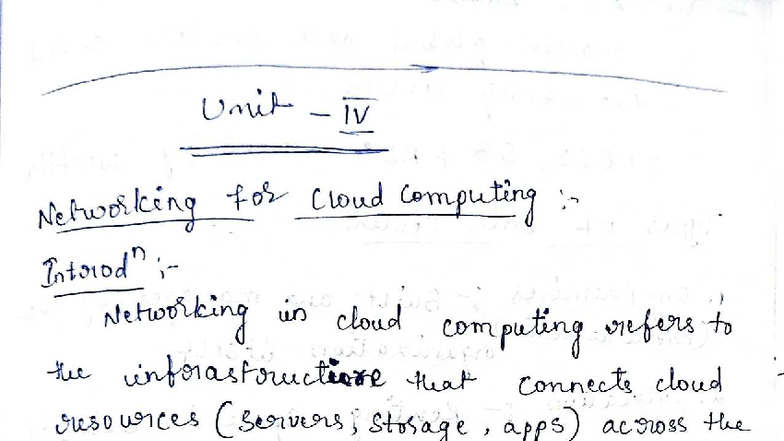 Unit - IV
Networking for Cloud Computing :-
Introdⁿ :-
Networking in cloud computing refers to
the infrastructure that connects cloud
resources (servers, storage, apps) across the